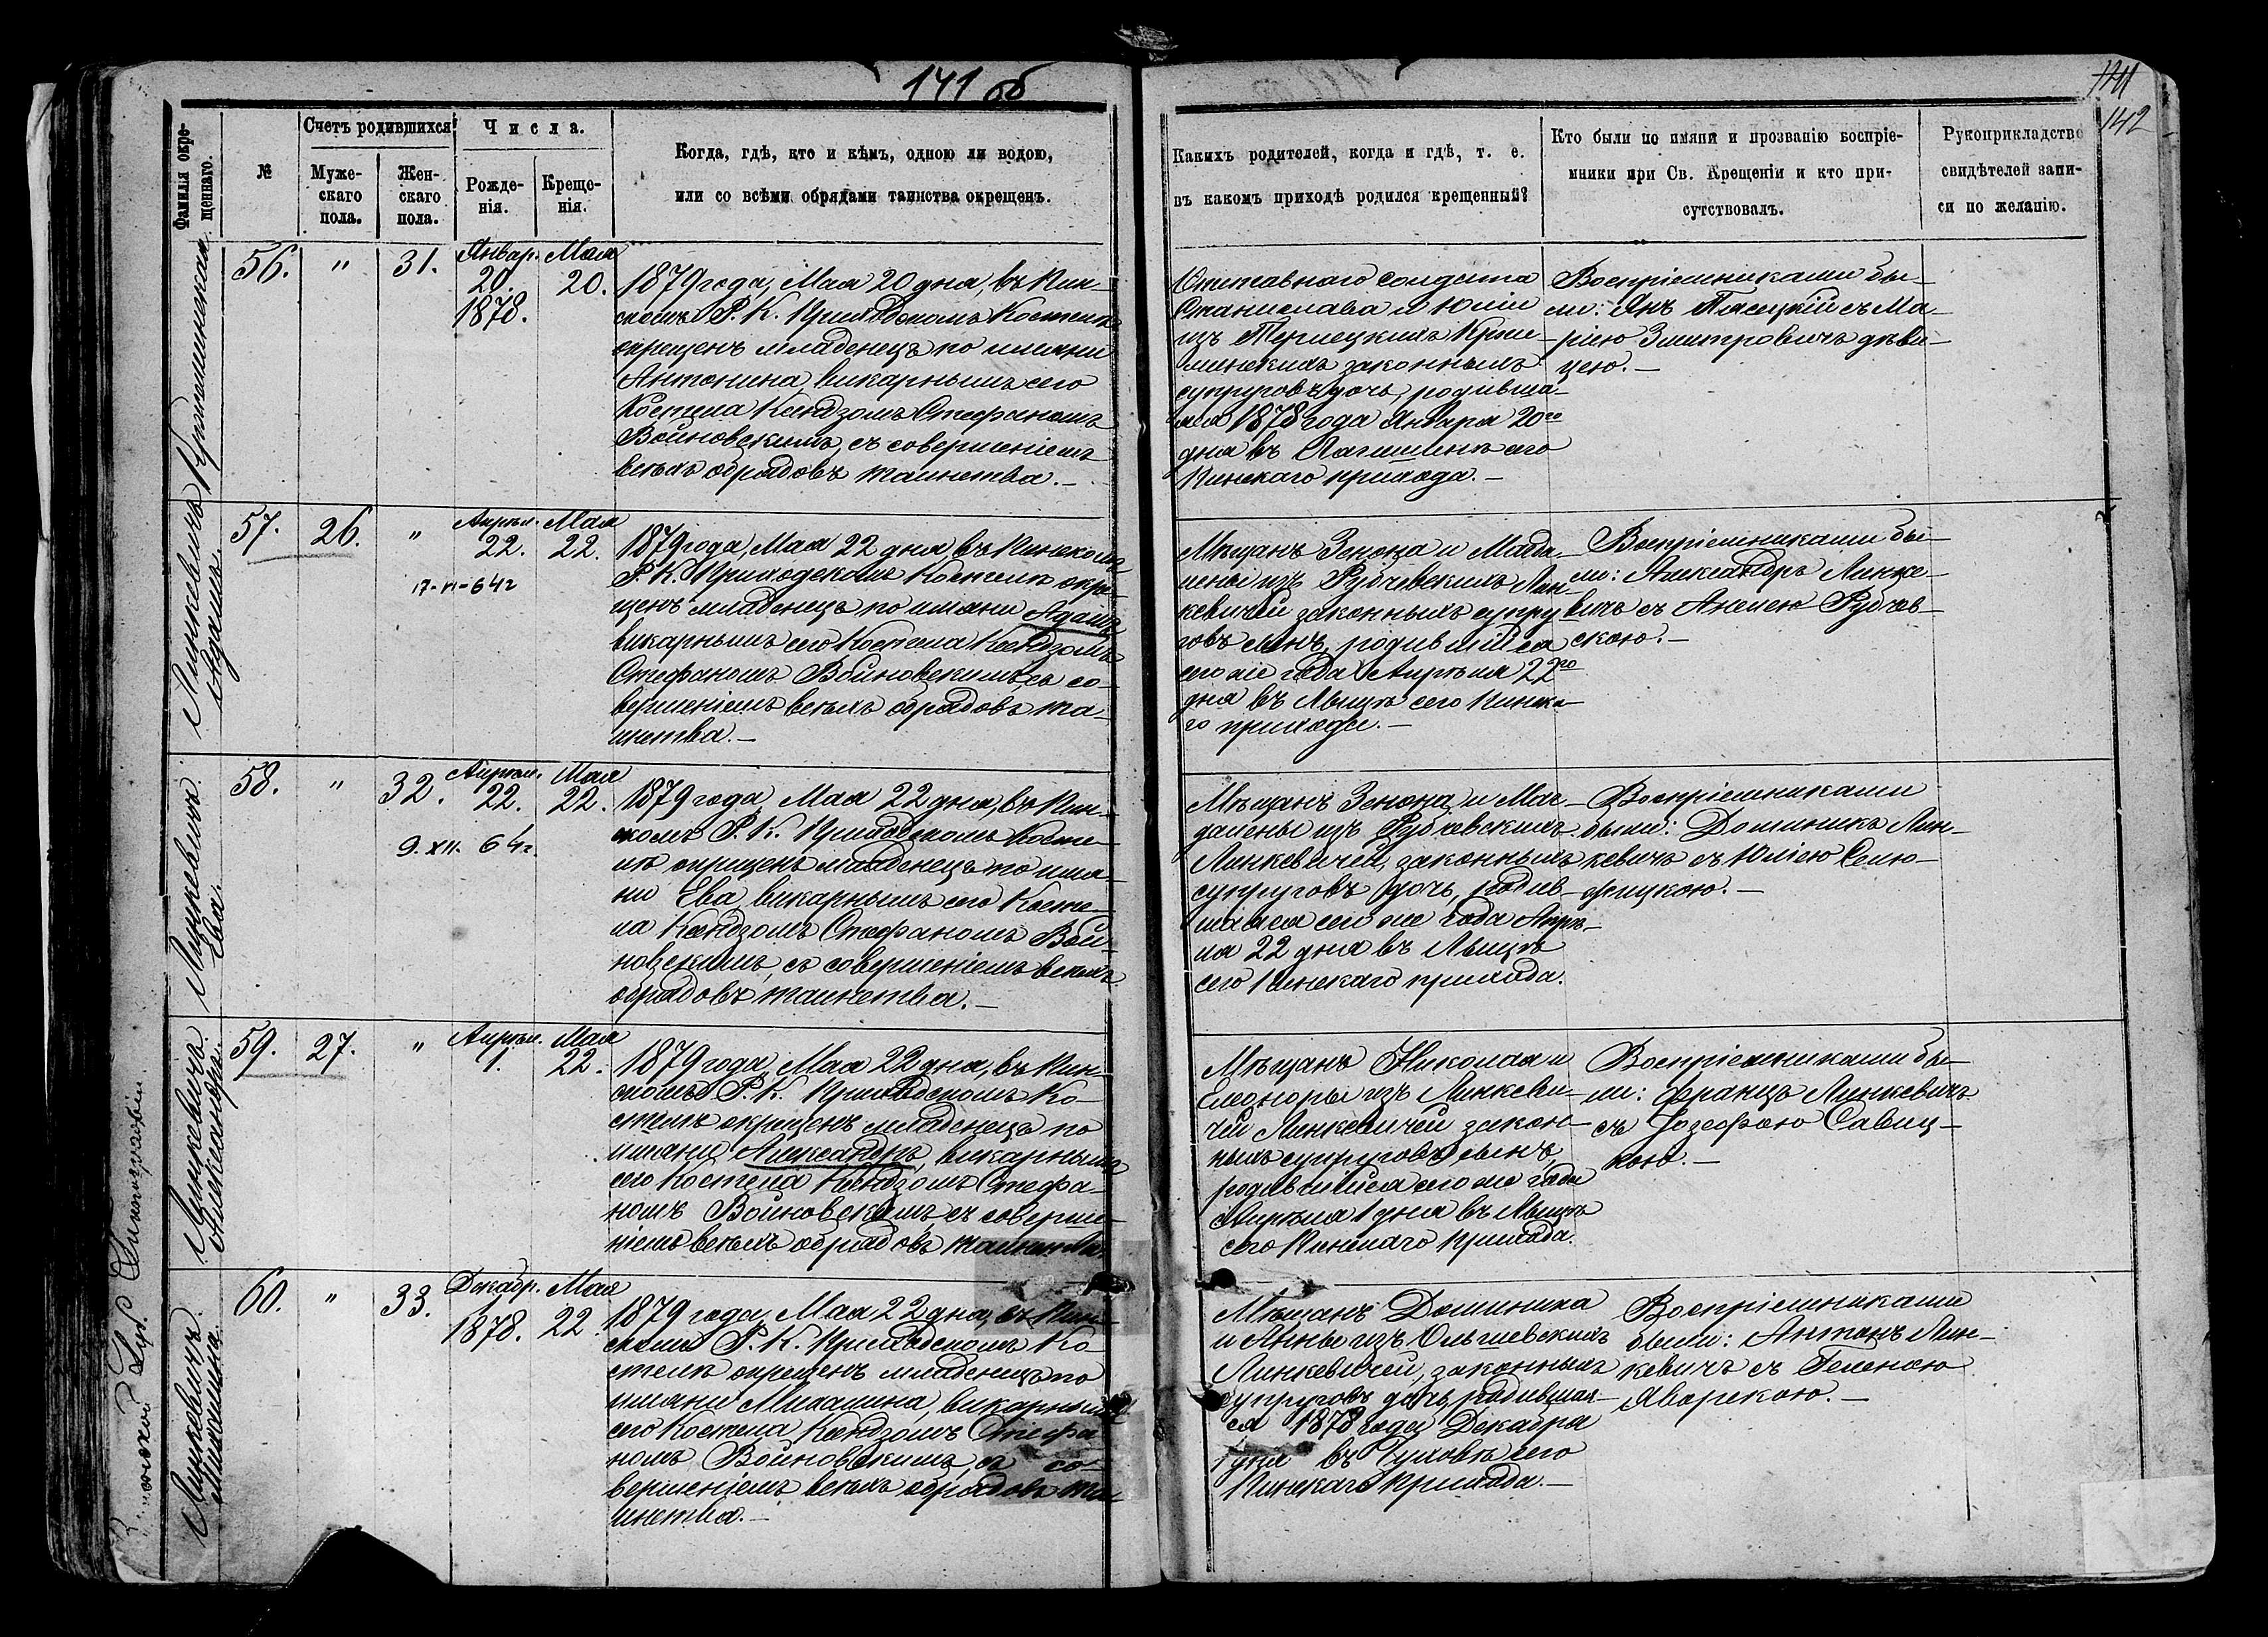 141 об
141
142
Фамилія окре-
щеннаго.
№
Счетъ родившихся
Муже-
скаго
пола.
Жен-
скаго
пола.
Числа.
Рожде-
нія.
Креще-
нія.
Когда, гдѣ, кто и кѣмъ, одною ли водою,
или со всѣми обрядами таинства окрещенъ.
Какихъ родителей, когда и гдѣ, т. е.
въ какомъ приходѣ родился крещенный?
Кто были по имяни и прозванію воспріе-
мники при Св. Крещеніи и кто при-
сутствовалъ.
Рукоприкладство
свидѣтелей запи-
си по желанію.
56.
"
31.
Январ.
20.
1878.
Мая
20.
1879 года, Мая 20 дня, въ Пин-
скомъ Р. К. Приходскомъ Костелѣ
окрещенъ младенецъ по имяни
Антонина, викарнымъ сего
Костела Ксендзомъ Стефаномъ
Войновскимъ, съ совершеніемъ
всѣхъ обрядовъ таинства. —
Отставнаго солдата
Станислава и Юліи
изъ
законныхъ
супруговъ дочь, родивша-
яся 1878 года Января 20го
дня въ сего
Пинскаго прихода. —
Воспріемниками бы-
ли: Янъ Пясецкій съ Ма-
ріею Змитровичъ дѣви-
цею. —
Линкевичъ
Адамъ.
57.
26.
"
Апрѣл.
22.
Мая
22.
17-VI-64г
1879 года, Мая 22 дня, въ Пинскомъ
Р. К. Приходскомъ Костелѣ окре-
щенъ младенецъ по имяни Адамъ,
викарнымъ сего Костела Ксендзомъ
Стефаномъ Войновскимъ, съ со-
вершеніемъ всѣхъ обрядовъ та-
инства. —
Мѣщанъ Зенона и Магда-
лены изъ Лин-
кевичей законныхъ супру-
говъ сынъ, родившійся
сего же года Апрѣля 22го
дня въ сего Пинска-
го прихода. —
Воспріемниками бы-
ли: Александръ Линке-
вичъ съ
скою. —
Линкевичъ
Ева.
58.
"
32.
Апрѣл.
22.
Мая
22.
9. XII. 64г.
1879 года, Мая 22 дня, въ Пин-
скомъ Р. К. Приходскомъ Косте-
лѣ окрещенъ младенецъ по имя-
ни Ева, викарнымъ сего Косте-
ла Ксендзомъ Стефаномъ Вой-
новскимъ, съ совершеніемъ всѣхъ
обрядовъ таинства. —
Мѣщанъ Зенона и Маг-
далены изъ
Линкевичей, законныхъ
супруговъ дочь, родив-
шаяся сего же года Апрѣ-
ля 22 дня въ
сего Пинскаго прихода.
Воспріемниками
были: Доминикъ Лин-
кевичъ съ Юліею
Линкевичъ
Александръ.
59.
27.
"
Апрѣл.
1.
Мая
22.
1879 года, Мая 22 дня, въ Пин-
скомъ Р. К. Приходскомъ Ко-
стелѣ окрещенъ младенецъ по
имяни Александръ, викарнымъ
сего Костела Ксендзомъ Стефа-
номъ Войновскимъ, съ соверше-
ніемъ всѣхъ обрядовъ таинства.
Мѣщанъ Николая и
Елеоноры изъ Линкеви-
чей Линкевичей закон-
ныхъ супруговъ сынъ,
родившійся сего же года
Апрѣля 1 дня въ
сего Пинскаго прихода.
Воспріемниками бы-
ли: Францъ Линкевичъ
съ Іозефою Савиц-
кою. —
Линкевичъ
Михалина.
60.
"
33.
Декабр.
1
1878.
Мая
22.
1879 года, Мая 22 дня, въ Пин-
скомъ Р. К. Приходскомъ Ко-
стелѣ окрещенъ младенецъ по
имяни Михалина, викарнымъ
сего Костела Ксендзомъ Стефа-
номъ Войновскимъ, съ со-
вершеніемъ всѣхъ обрядовъ та-
инства. —
Мѣщанъ Доминика
и Анны изъ Ольшевскихъ
Линкевичей, законныхъ
супруговъ дочь, родившая-
ся 1878 года Декабря
1 дня въ сего
Пинскаго прихода. —
Воспріемниками
были: Антонъ Лин-
кевичъ съ Геленою
Яворскою. —